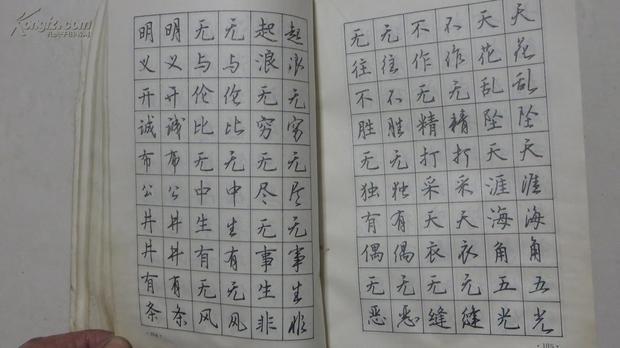 明义开诚布公井井有条
明义开诚布公井井有条
无与伦比无中生有无风
无与伦比无中生有无风
起浪无穷无尽无事生非
起浪无穷无尽无事生非
无往不胜无独有偶无恶
无往不胜无独有偶无恶
不作无精打采天衣无缝
不作无精打采天衣无缝
天花乱坠天涯海角五光
天花乱坠天涯海角五光
·105·